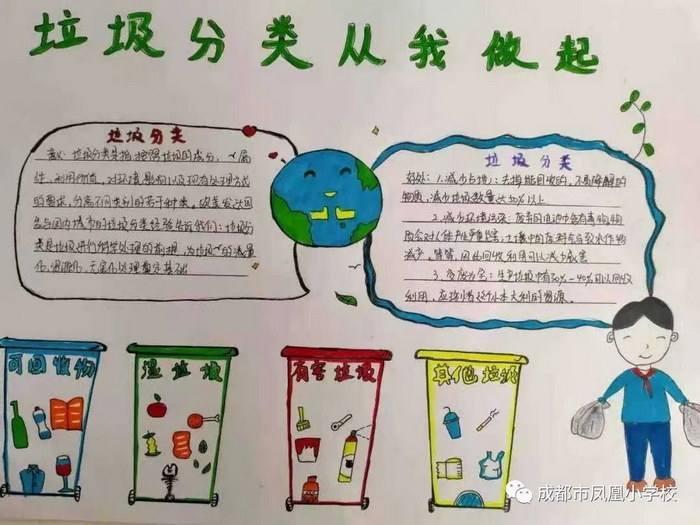 垃圾分类从我做起
垃圾分类
意义:垃圾分类是指按照垃圾的成分、
性、利用价值、对环境影响以及现有处理方式
的要求,分成不同类别的若干种类。
国与国内城市的垃圾分类经验告诉我们:垃圾分
类是垃圾进行科学处理的前提,为垃圾的减量
化、资源化、无害化处理奠定基础
垃圾分类
好处:1.减少占地:去掉能回收的、不易降解的
物质,减少垃圾数量达50%以上
2.减少环境污染:废弃的电池中含有毒物
质会对人体产生严重危害,土壤中的废料会导致农作物
减产,等等,因此回收利用可以减少危害
3.变废为宝:生产垃圾中有30%-40%可以回收
利用,应珍惜这个小本大利的资源。
可回收物
湿垃圾
有害垃圾
其他垃圾
成都市凤凰小学校